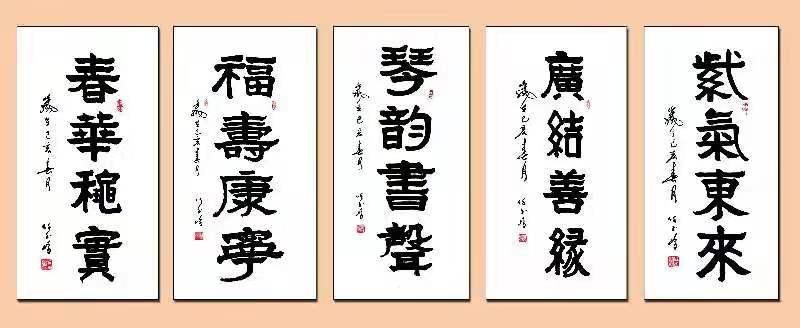 春華穐實
歲在己亥春月
福壽康寧
歲在己亥春月
琴韵書聲
歲在己亥春月
廣結善緣
歲在己亥春月
紫氣東來
歲在己亥春月